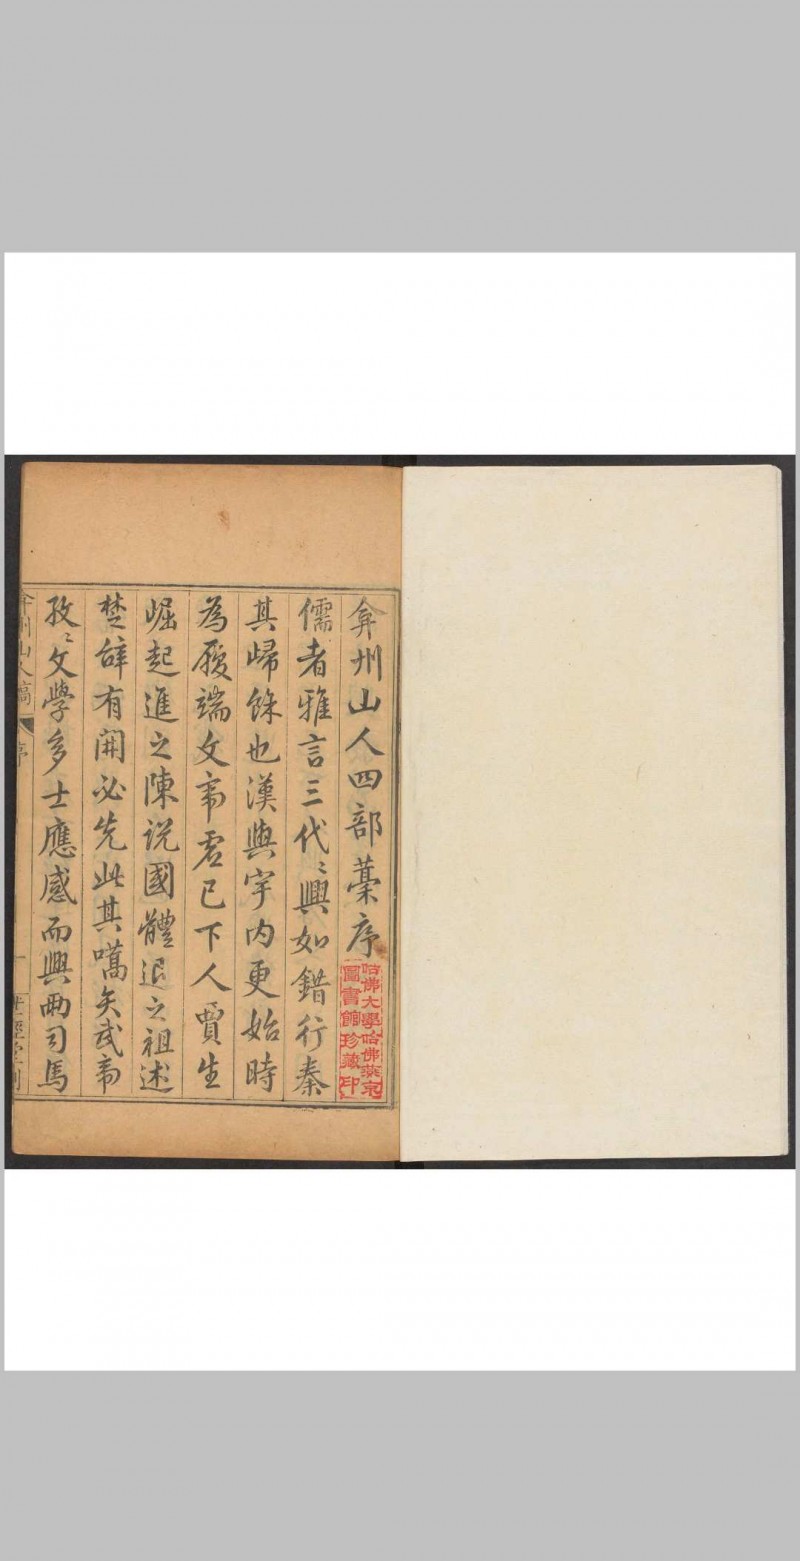 弇州山人四部藁序
哈佛大學哈佛燕京
圖書館珍藏印
儒者雅言三代〻興如錯行秦
其歸餘也漢興宇内更始時
為履端文帝虚已下人賈生
崛起進之陳説國體退之祖述
楚辭有開必先此其嚆矢武帝
孜〻文學多士應感而興兩司馬
弇州山人稿
序
一
世經堂刻